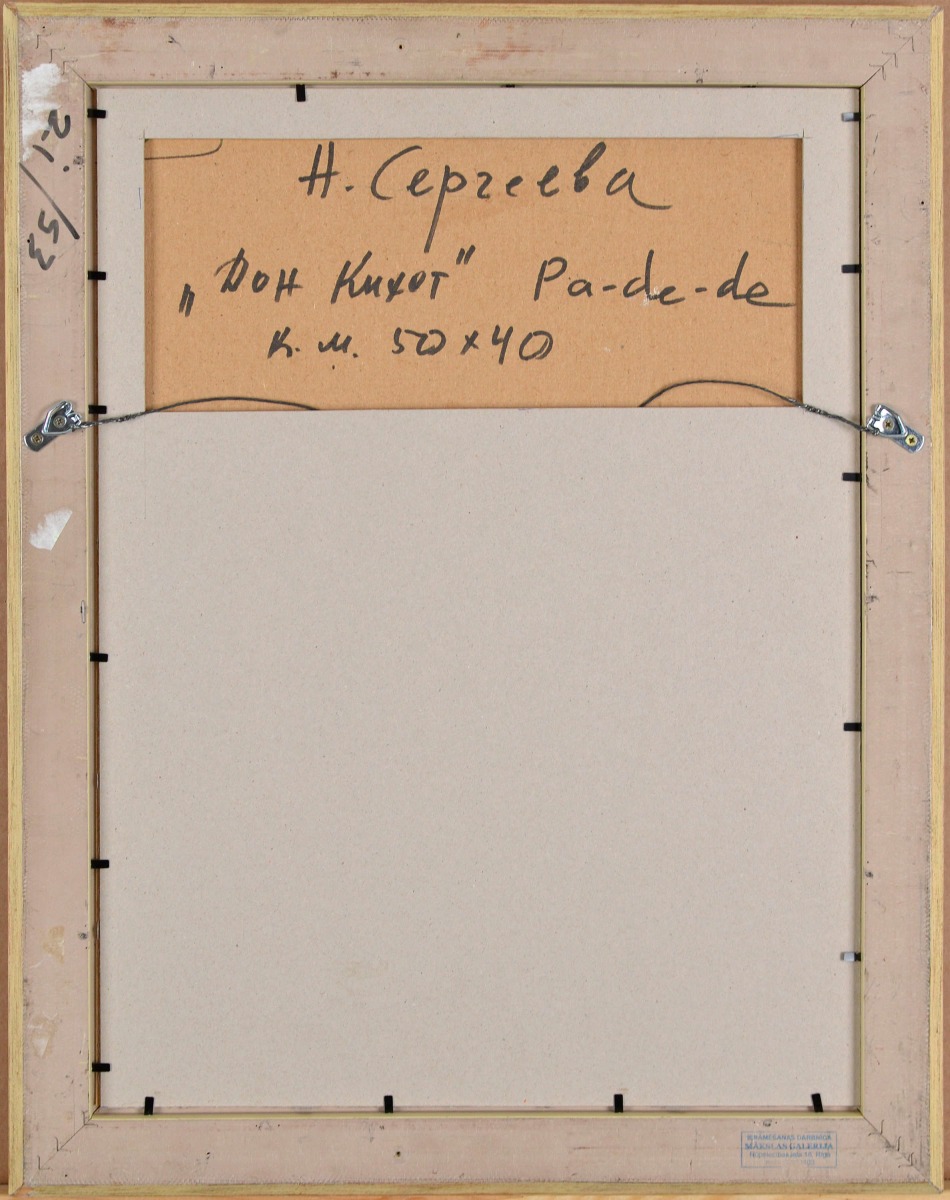 Н. Сергеева
„Дон Кихот" Pa-de-de
к.м. 50 x 40
21/53
MĀKSLAS GALERIJA